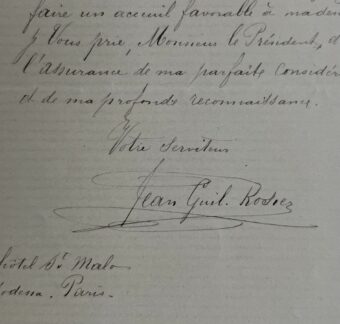 faire un acceuil favorable à ma
Vous prie, Monsieur le Président, d
l'assurance de ma parfaite considér
et de ma profonde reconnaissance.
Votre serviteur
Jean Guil.
hôtel St Malo
odessa. Paris.